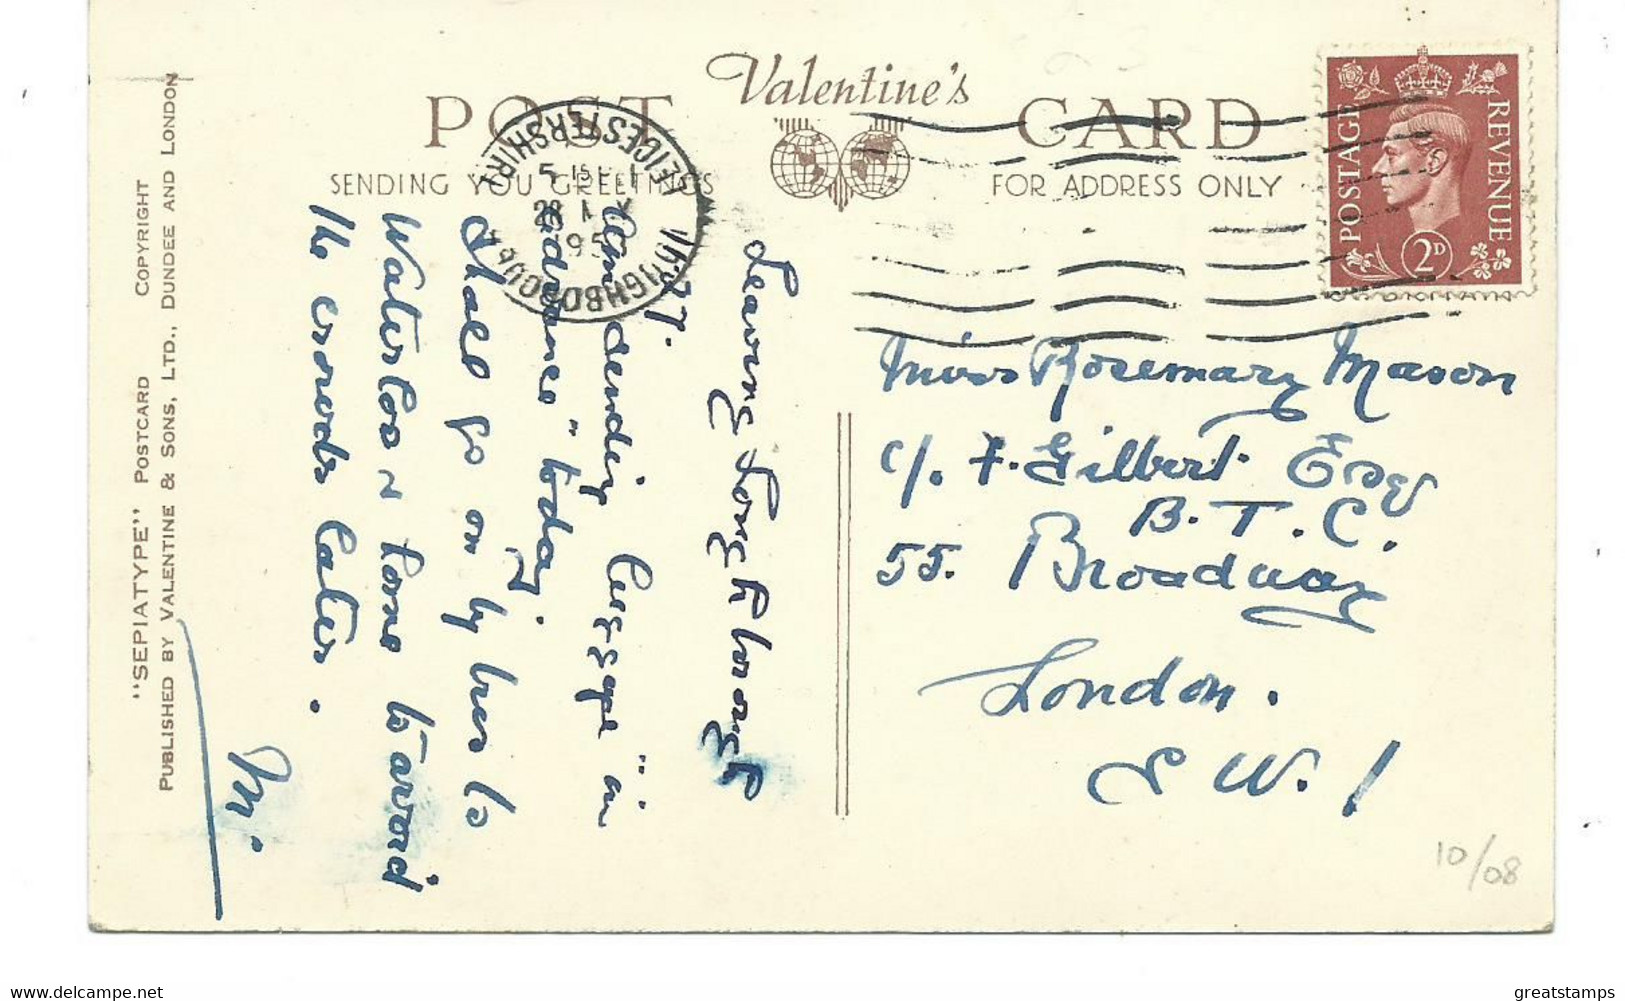 POST Valentine's CARD
SENDING YOU GREETINGS
FOR ADDRESS ONLY
POSTAGE
REVENUE
2D
LOUGHBOROUGH
LEICESTERSHIRE
195
"SEPIATYPE" POSTCARD COPYRIGHT
PUBLISHED BY VALENTINE & SONS, LTD., DUNDEE AND LONDON
Leaving Loughborough
Am sending luggage "in
advance" today.
Shall go on by bus to
Waterloo & home to avoid
the crowds later.
M.
Miss Rosemary Mason
c/. F. Gilbert Esq
B. T. C.
55. Broadway
London.
S W. 1
10/08
https://www.delcampe.net
greatstamps